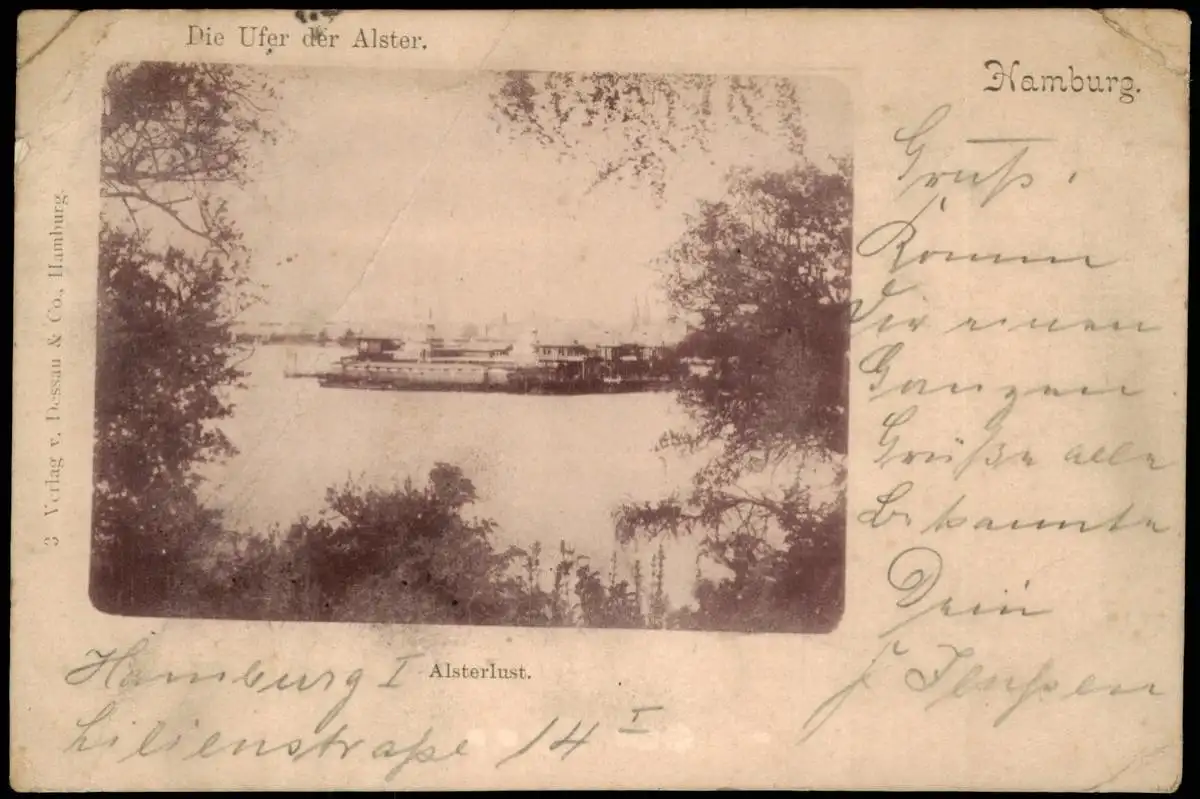 Die Ufer der Alster.
Hamburg.
Gruß,
einen
Ganzen
Grüße alle
Bekannte
Dein
J
Alsterlust.
Hamburg I
Lilienstraße 14 I
3 Verlag v. Dessau & Co., Hamburg.